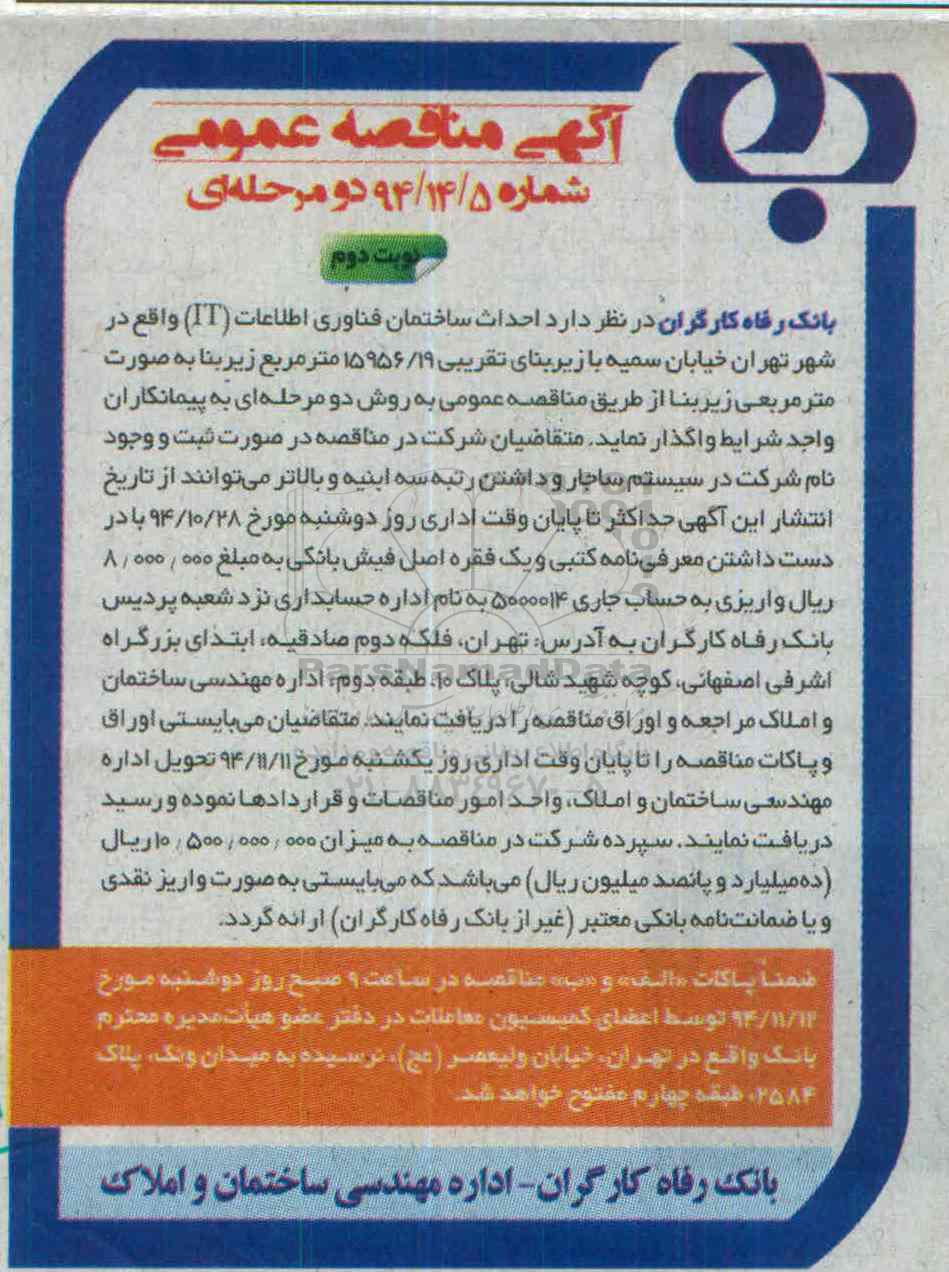 آگهی مناقصه عمومی
شماره ۹۴/۱۴/۵ دو مرحله‌ای
نوبت دوم
بانک رفاه کارگران در نظر دارد احداث ساختمان فناوری اطلاعات (IT) واقع در
شهر تهران خیابان سمیه با زیربنای تقریبی ۱۵۹۵۶/۱۹ مترمربع زیربنا به صورت
مترمربعی زیربنا از طریق مناقصه عمومی به روش دو مرحله‌ای به پیمانکاران
واجد شرایط واگذار نماید. متقاضیان شرکت در مناقصه در صورت ثبت و وجود
نام شرکت در سیستم ساجار و داشتن رتبه سه ابنیه و بالاتر می‌توانند از تاریخ
انتشار این آگهی حداکثر تا پایان وقت اداری روز دوشنبه مورخ ۹۴/۱۰/۲۸ با در
دست داشتن معرفی‌نامه کتبی و یک فقره اصل فیش بانکی به مبلغ ۸٫۰۰۰٫۰۰۰
ریال واریزی به حساب جاری ۵۰۰۰۰۱۴ به نام اداره حسابداری نزد شعبه پردیس
بانک رفاه کارگران به آدرس: تهران، فلکه دوم صادقیه، ابتدای بزرگراه
اشرفی اصفهانی، کوچه شهید شالی، پلاک ۱۰، طبقه دوم، اداره مهندسی ساختمان
و املاک مراجعه و اوراق مناقصه را دریافت نمایند. متقاضیان می‌بایستی اوراق
و پاکات مناقصه را تا پایان وقت اداری روز یکشنبه مورخ ۹۴/۱۱/۱۱ تحویل اداره
مهندسی ساختمان و املاک، واحد امور مناقصات و قراردادها نموده و رسید
دریافت نمایند. سپرده شرکت در مناقصه به میزان ۱۰٫۵۰۰٫۰۰۰٫۰۰۰ ریال
(ده‌میلیارد و پانصد میلیون ریال) می‌باشد که می‌بایستی به صورت واریز نقدی
و یا ضمانت‌نامه بانکی معتبر (غیر از بانک رفاه کارگران) ارائه گردد.
ضمناً پاکات «الف» و «ب» مناقصه در ساعت ۹ صبح روز دوشنبه مورخ
۹۴/۱۱/۱۲ توسط اعضای کمیسیون معاملات در دفتر عضو هیأت‌مدیره محترم
بانک واقع در تهران، خیابان ولیعصر (عج)، نرسیده به میدان ونک، پلاک
۲۵۸۴، طبقه چهارم مفتوح خواهد شد.
بانک رفاه کارگران- اداره مهندسی ساختمان و املاک
ParsNamadData
۰۲۱-۸۸۳۴۹۶۷۰